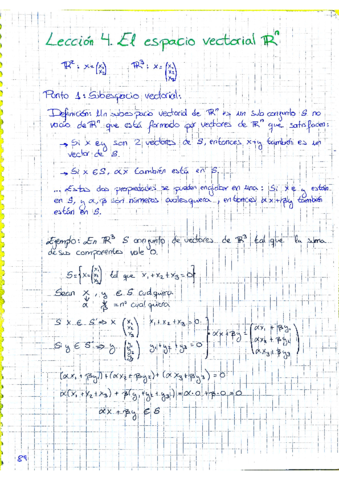 Lección 4. El espacio vectorial ℝⁿ
ℝ²: x=(x₁ x₂) ℝ³: x=(x₁ x₂ x₃)
Punto 1: Subespacio vectorial:
Definición: Un subespacio vectorial de ℝⁿ es un subconjunto S no
vacío de ℝⁿ que está formado por vectores de ℝⁿ que satisfacen:
→ Si x e y son 2 vectores de S, entonces x+y también es un
vector de S.
→ Si x ∈ S, αx también está en S.
... Estas dos propiedades se pueden englobar en una: Si x e y están
en S, y α, β son números cualesquiera, entonces αx+βy también
están en S.
Ejemplo: En ℝ³ S conjunto de vectores de ℝ³ tal que la suma
de sus componentes vale 0.
S={x=(x₁ x₂ x₃) tal que x₁+x₂+x₃=0}
Sean x, y ∈ S cualquiera
α β = nº cualquiera
Si x ∈ S ⇒ x (x₁ x₂ x₃) x₁+x₂+x₃=0
Si y ∈ S ⇒ y (y₁ y₂ y₃) y₁+y₂+y₃=0
αx+βy=(αx₁+βy₁ αx₂+βy₂ αx₃+βy₃)
(αx₁+βy₁)+(αx₂+βy₂)+(αx₃+βy₃)=0
α(x₁+x₂+x₃)+β(y₁+y₂+y₃)=α·0+β·0=0
αx+βy ∈ S